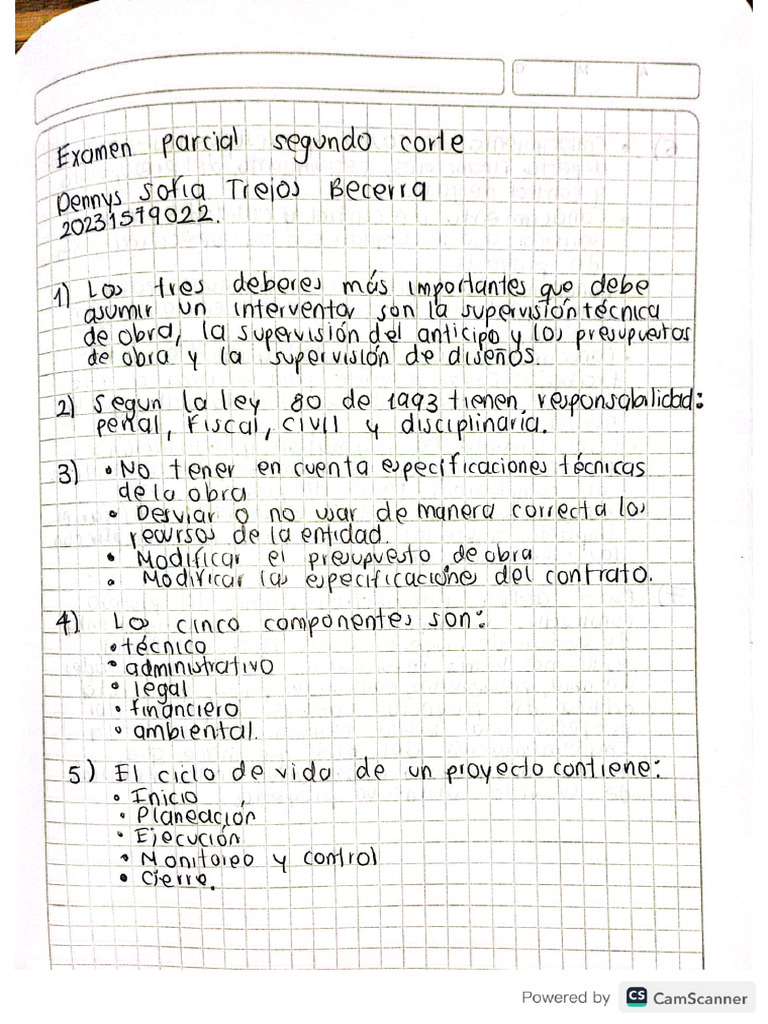 Examen parcial segundo corte
Dennys Sofía Trejos Becerra
20231579022.
1) Los tres deberes más importantes que debe
asumir un interventor son la supervisión técnica
de obra, la supervisión del anticipo y los presupuestos
de obra y la supervisión de diseños.
2) Segun la ley 80 de 1993 tienen responsabilidad:
penal, fiscal, civil y disciplinaria.
3) • No tener en cuenta especificaciones técnicas
de la obra
• Desviar o no usar de manera correcta los
recursos de la entidad.
• Modificar el presupuesto de obra
• Modificar las especificaciones del contrato.
4) Los cinco componentes son:
• técnico
• administrativo
• legal
• financiero
• ambiental.
5) El ciclo de vida de un proyecto contiene:
• Inicio
• Planeación
• Ejecución
• Monitoreo y control
• Cierre.
Powered by CS CamScanner